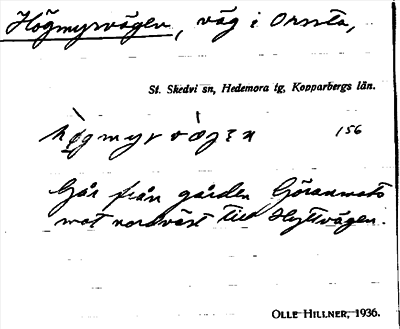 Högmyrvägen, väg i Orssta,
St. Skedvi sn, Hedemora tg, Kopparbergs län.
156
Går från gården Göransmats
mot nordväst till Hyttvägen.
OLLE HILLNER, 1936.